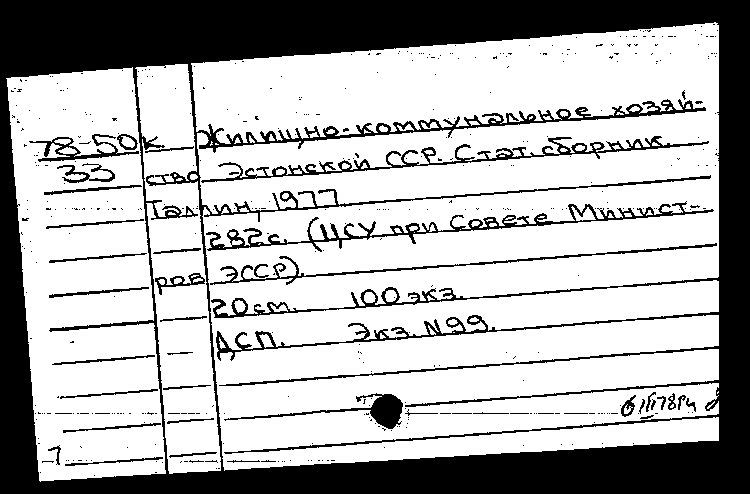 78-50к Жилищно-коммунальное хозяй-
33 ство Эстонской ССР. Стат. сборник.
Таллин, 1977
282с. (ЦСУ при Совете Минист-
ров ЭССР).
20см. 100 экз.
ДСП. Экз. N 99.
7